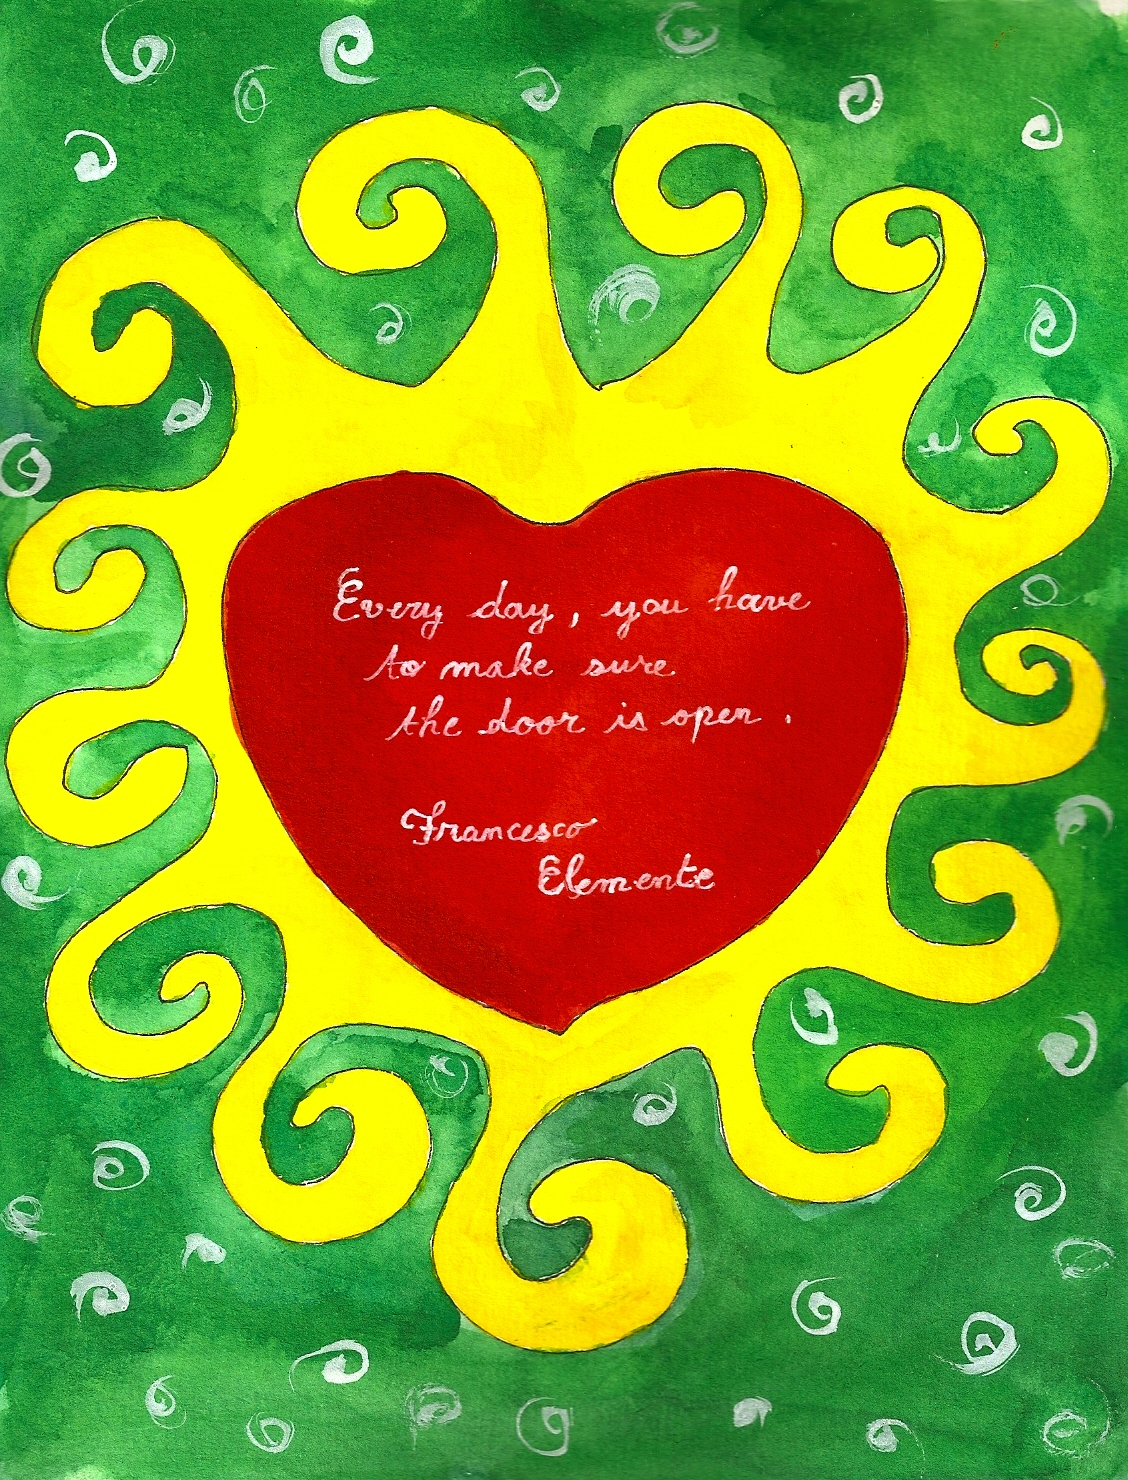 Every day, you have
to make sure
the door is open.
Francesco
Elemente